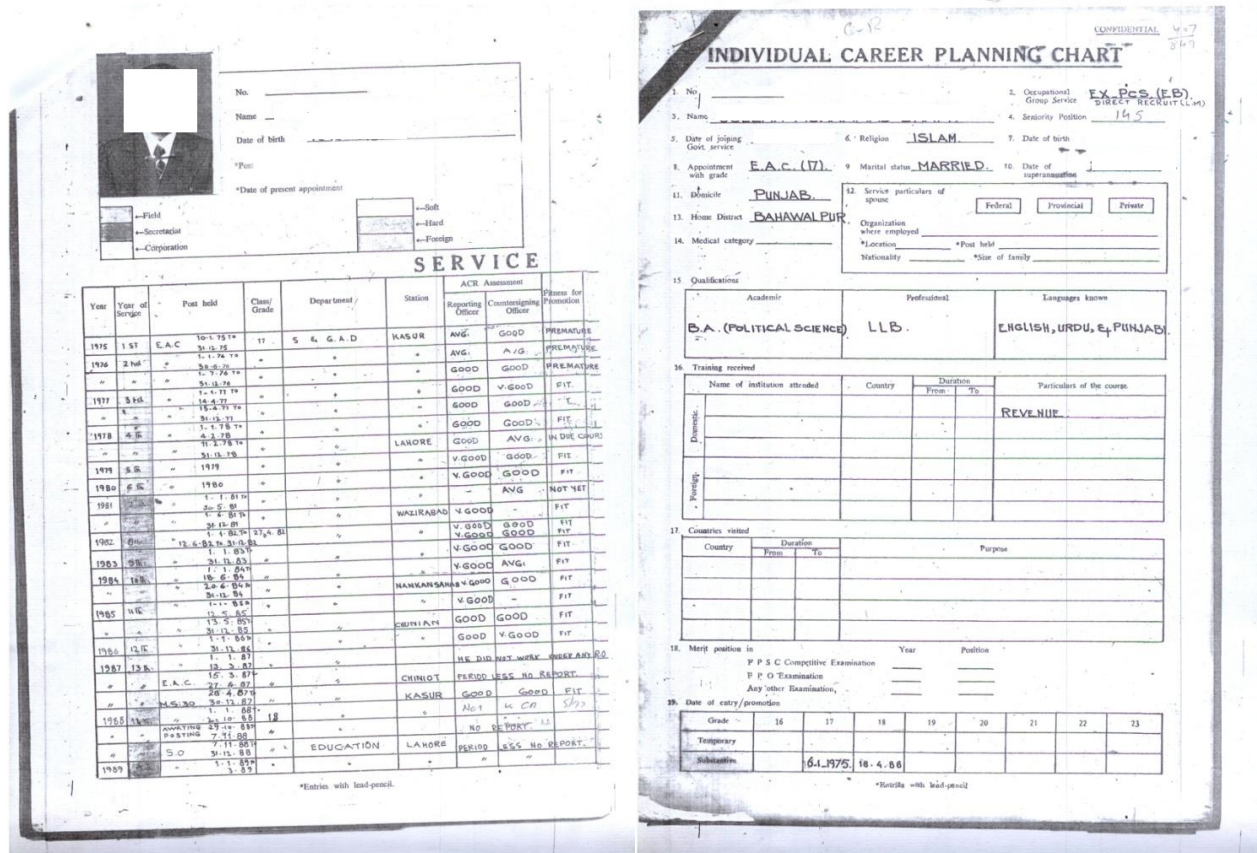 No.
Name
Date of birth
*Post
*Date of present appointment
←Field
←Secretariat
←Corporation
←Soft
←Hard
←Foreign
SERVICE
Year Year of Service Post held Class/Grade Department Station ACR Assessment Reporting Officer Countersigning Officer Fitness for Promotion
1975 1 ST E.A.C 10-1-75 TO 31-12-75 17 S & G.A.D KASUR AVG. GOOD PREMATURE
1976 2 nd 1-1-76 TO 30-6-76 AVG. AVG PREMATURE
1-7-76 TO 31-12-76 GOOD GOOD PREMATURE
1977 3 rd 1-1-77 TO 14-4-77 GOOD V.GOOD FIT
15-4-77 TO 31-12-77 GOOD GOOD
1978 1-1-78 TO 4-2-78 GOOD GOOD FIT
11-2-78 TO 31-12-78 LAHORE GOOD AVG. IN DUE COURS
1979 1979 V.GOOD GOOD FIT
1980 1980 V.GOOD GOOD FIT
1981 1-1-81 TO 20-5-81 - AVG NOT YET
1-6-81 TO 31-12-81 WAZIRABAD V.GOOD - FIT
1982 1-1-82 TO 27.4.82 V.GOOD GOOD FIT
12-6-82 TO 31-12-82 V.GOOD GOOD FIT
1983 1-1-83 TO 31-12-83 V.GOOD GOOD FIT
1984 1-1-84 TO 18-6-84 V.GOOD AVG. FIT
20-6-84 TO 31-12-84 NANKANSAHAB V.GOOD GOOD FIT
1985 1-1-85 TO 12-5-85 V.GOOD - FIT
13-5-85 TO 31-12-85 CHUNIAN GOOD GOOD FIT
1986 1-1-86 TO 31-12-86 GOOD V.GOOD FIT
1987 1-1-87 13-3-87 HE DID NOT WORK UNDER ANY RO
E.A.C. 15-3-87 TO 27-4-87 CHINIOT PERIOD LESS NO REPORT.
28-4-87 TO 30-12-87 KASUR GOOD GOOD FIT
1988 1-1-88 TO 18
AWAITING POSTING 29-10-88 TO 7-11-88 NO REPORT
S.O 7-11-88 TO 31-12-88 EDUCATION LAHORE PERIOD LESS NO REPORT.
1989 1-1-89 TO 3-89
*Entries with lead-pencil.
CONFIDENTIAL
INDIVIDUAL CAREER PLANNING CHART
1. No
2. Occupational Group Service EX-PCS.(EB). DIRECT RECRUIT
3. Name
4. Seniority Position 145
5. Date of joining Govt. service
6. Religion ISLAM.
7. Date of birth
8. Appointment with grade E.A.C. (17).
9 Marital status MARRIED.
10. Date of superannuation
11. Domicile PUNJAB.
12. Service particulars of spouse
Federal Provincial Private
13. Home District BAHAWALPUR
Organization where employed
14. Medical category
*Location *Post held
Nationality *Size of family
15 Qualifications
Academic Professional Languages known
B.A. (POLITICAL SCIENCE) LLB. ENGLISH, URDU, & PUNJABI.
16. Training received
Name of institution attended Country Duration From To Particulars of the course
Domestic
REVENUE
Foreign
17. Countries visited
Country Duration From To Purpose
18. Merit position in Year Position
F P S C Competitive Examination
F P O Examination
Any other Examination,
19. Date of entry/promotion
Grade 16 17 18 19 20 21 22 23
Temporary
Substantive 6.1.1975. 18.4.88
*Entries with lead-pencil